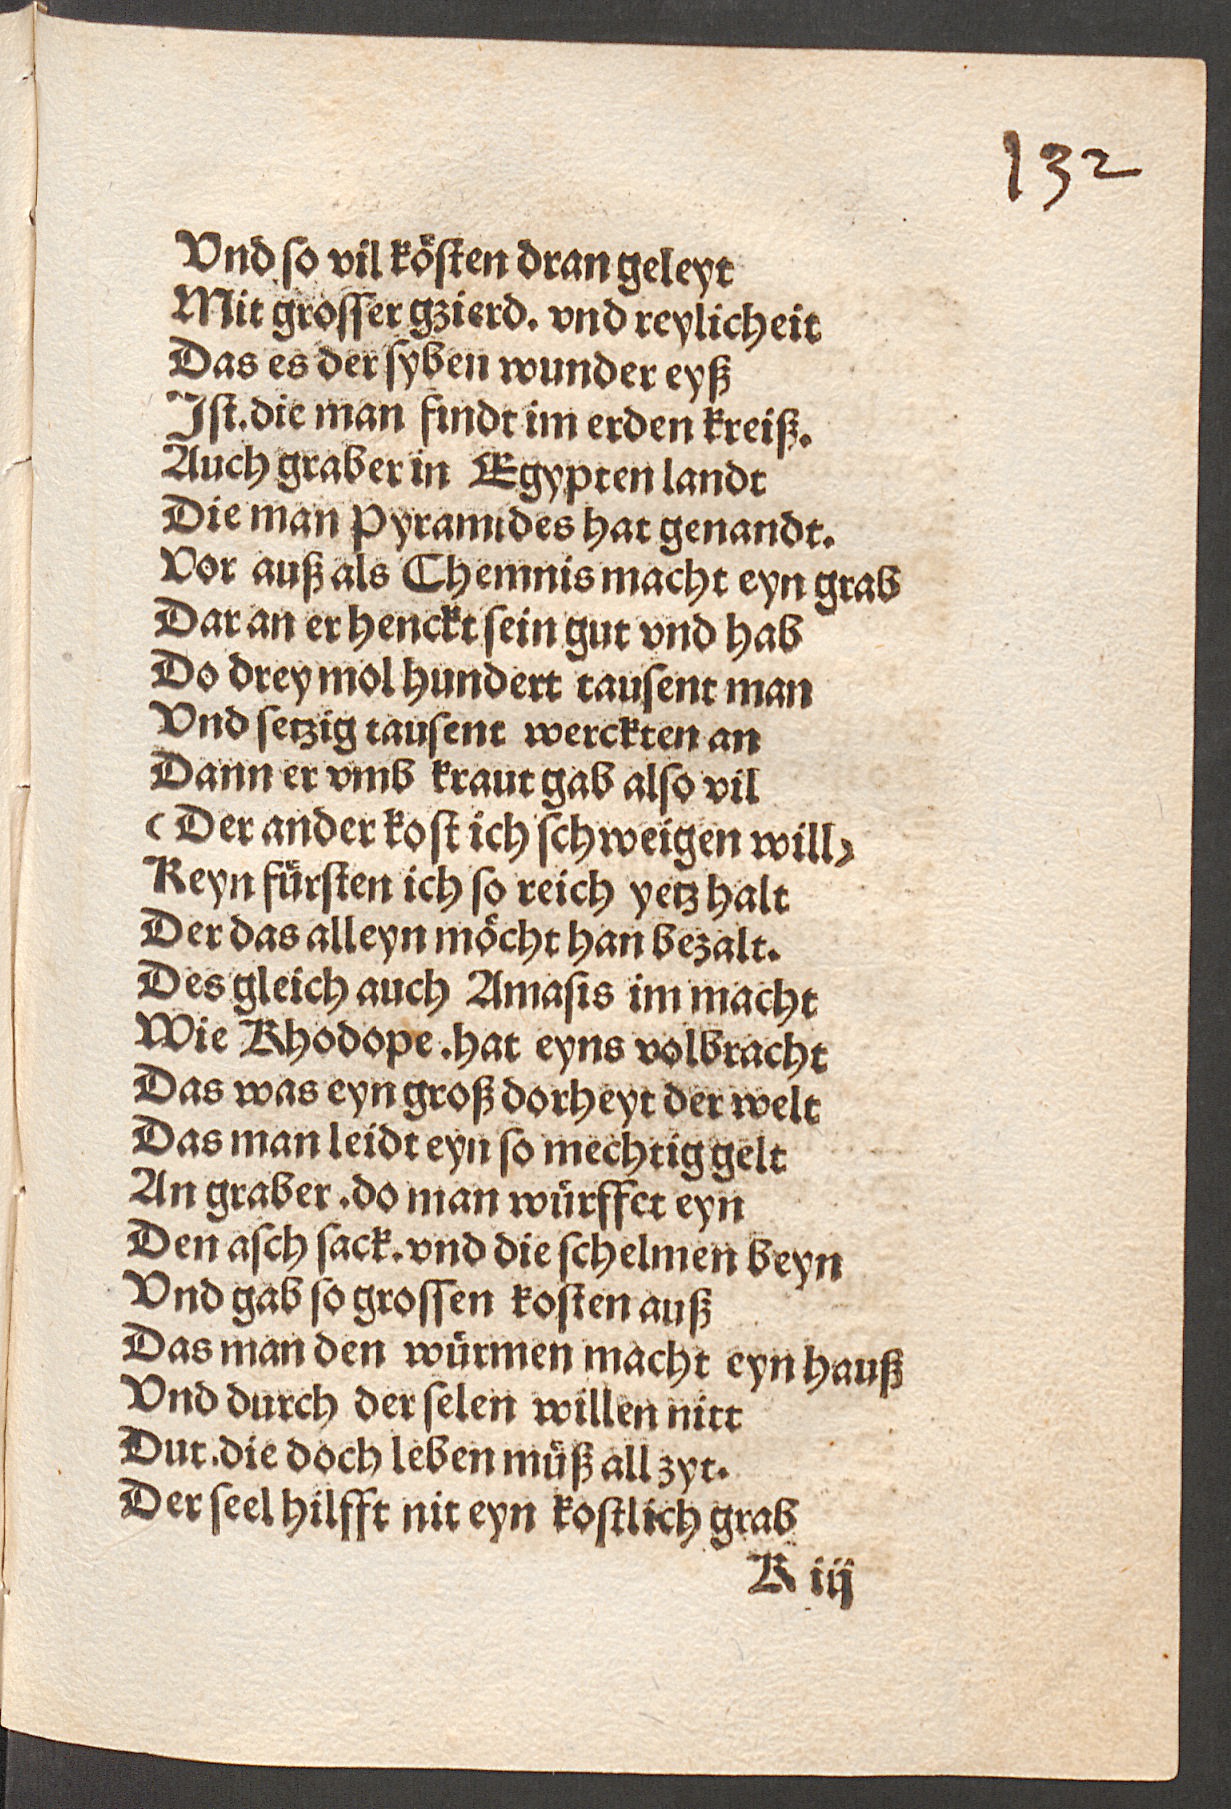 132
Vnd so vil kösten dran geleyt
Mit grosser gzierd. vnd reylicheit
Das es der syben wunder eyß
Jst. die man findt im erden kreiß.
Auch graber in Egypten landt
Die man Pyramides hat genandt.
Vor auß als Chemnis macht eyn grab
Dar an er henckt sein gut vnd hab
Do drey mol hundert tausent man
Vnd setzig tausent werckten an
Dann er vmb kraut gab also vil
(Der ander kost ich schweigen will)
Keyn fürsten ich so reich yetz halt
Der das alleyn möcht han bezalt.
Des gleich auch Amasis im macht
Wie Rhodope. hat eyns volbracht
Das was eyn groß dorheyt der welt
Das man leidt eyn so mechtig gelt
An graber. do man würffct eyn
Den asch sack. vnd die schelmen beyn
Vnd gab so grossen kosten auß
Das man den würmen macht eyn hauß
Vnd durch der selen willen nitt
Dut. die doch leben müß all zyt.
Der seel hilfft nit eyn kostlich grab
K iij